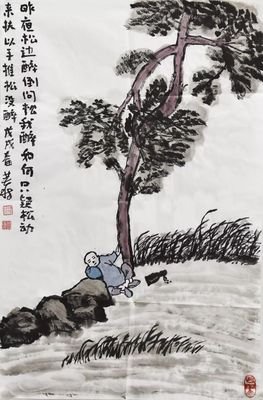 昨夜松边醉倒问松我醉如何只疑松动
来扶以手推松没醉戊戌春